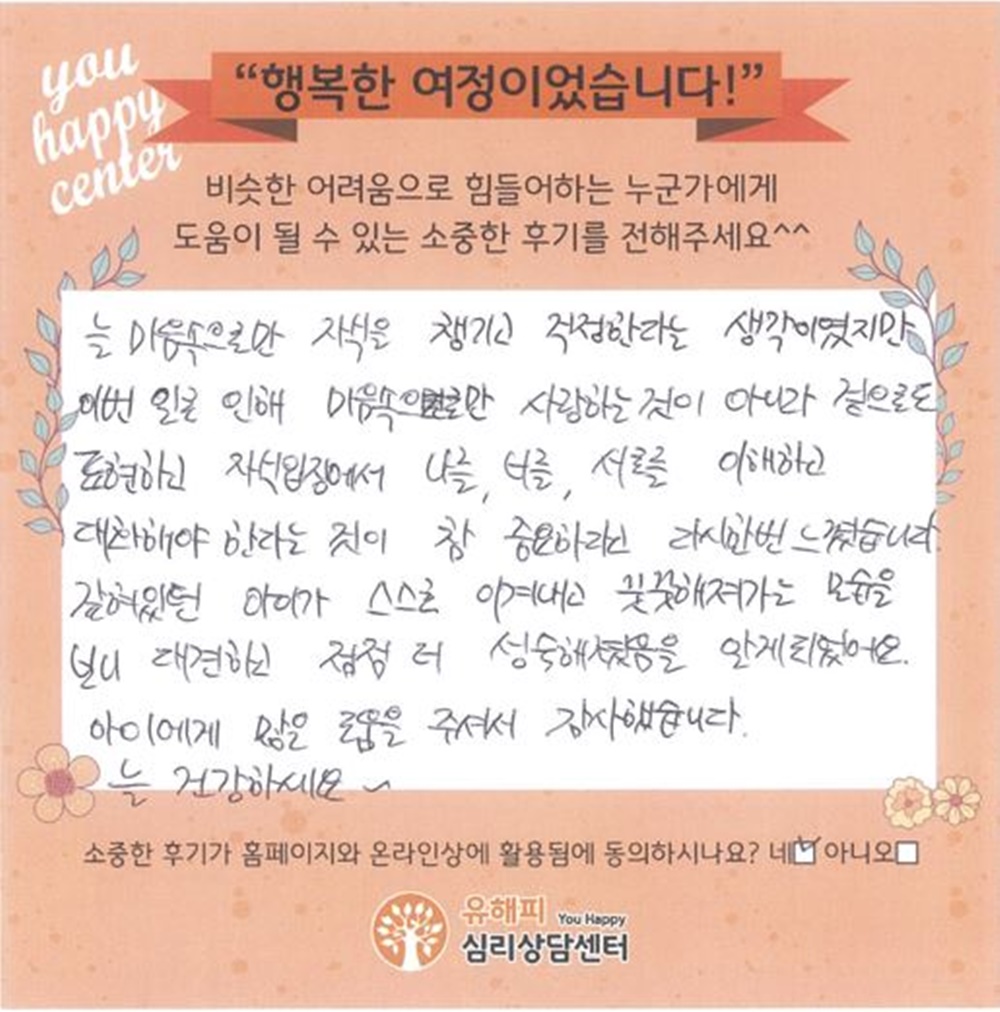 you
happy
center
“행복한 여정이었습니다!”
비슷한 어려움으로 힘들어하는 누군가에게
도움이 될 수 있는 소중한 후기를 전해주세요^^
늘 마음속으로만 자식은 챙기고 걱정한라는 생각이였지만
이번 일로 인해 마음속으로만 사랑하는것이 아니라 겉으로도
표현하고 자식입장에서 나를, 너를, 서로를 이해하고
대화해야 한다는 것이 참 중요하다고 다시한번 느꼈습니다.
갇혀있던 아이가 스스로 이겨내고 꿋꿋해져가는 모습을
보니 대견하고 점점 더 성숙해졌음을 알게되었어요.
아이에게 많은 도움을 주셔서 감사했습니다.
늘 건강하세요~
소중한 후기가 홈페이지와 온라인상에 활용됨에 동의하시나요? 네 아니오
유해피 You Happy
심리상담센터